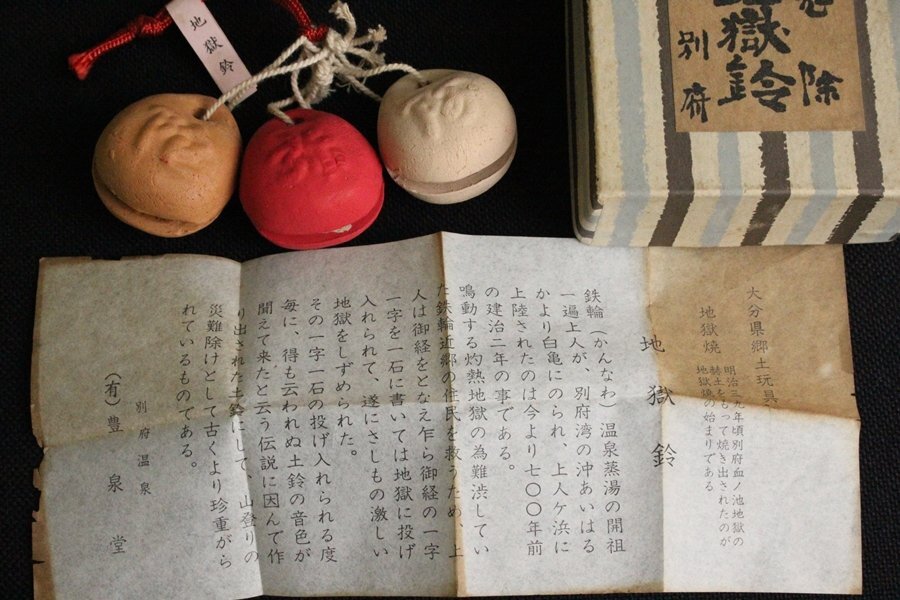 地獄鈴
除
獄鈴
別府
大分県郷土玩具
地獄焼
明治三九年頃別府血ノ池地獄の
赫土をもって焼き出されたのが
地獄焼の始まりである
地獄鈴
鉄輪（かんなわ）温泉蒸湯の開祖
一遍上人が、別府湾の沖あいはる
かより白亀にのられ、上人ケ浜に
上陸されたのは今より七〇〇年前
の建治二年の事である。
鳴動する灼熱地獄の為難渋してい
た鉄輪近郷の住民を救うため、上
人は御経をとなえ乍ら御経の一字
一字を一石に書いては地獄に投げ
入れられて、遂にさしもの激しい
地獄をしずめられた。
その一字一石の投げ入れられる度
毎に、得も云われぬ土鈴の音色が
聞えて来たと云う伝説に因んで作
り出された土鈴にして、山登りの
災難除けとして古くより珍重がら
れているものである。
別府温泉
（有）豊泉堂